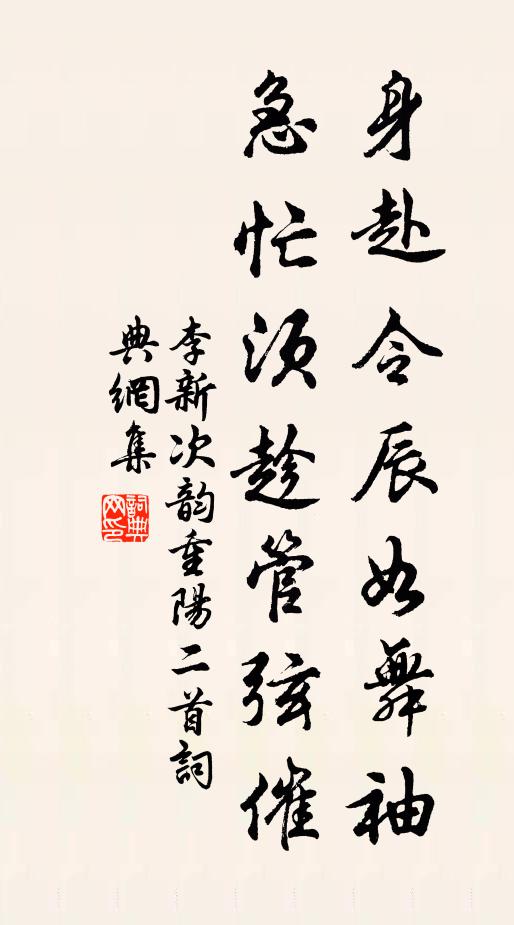 身赴令辰如舞袖
急忙須趁管弦催
李新次韵重陽二首詞
典網集
詞典
网印